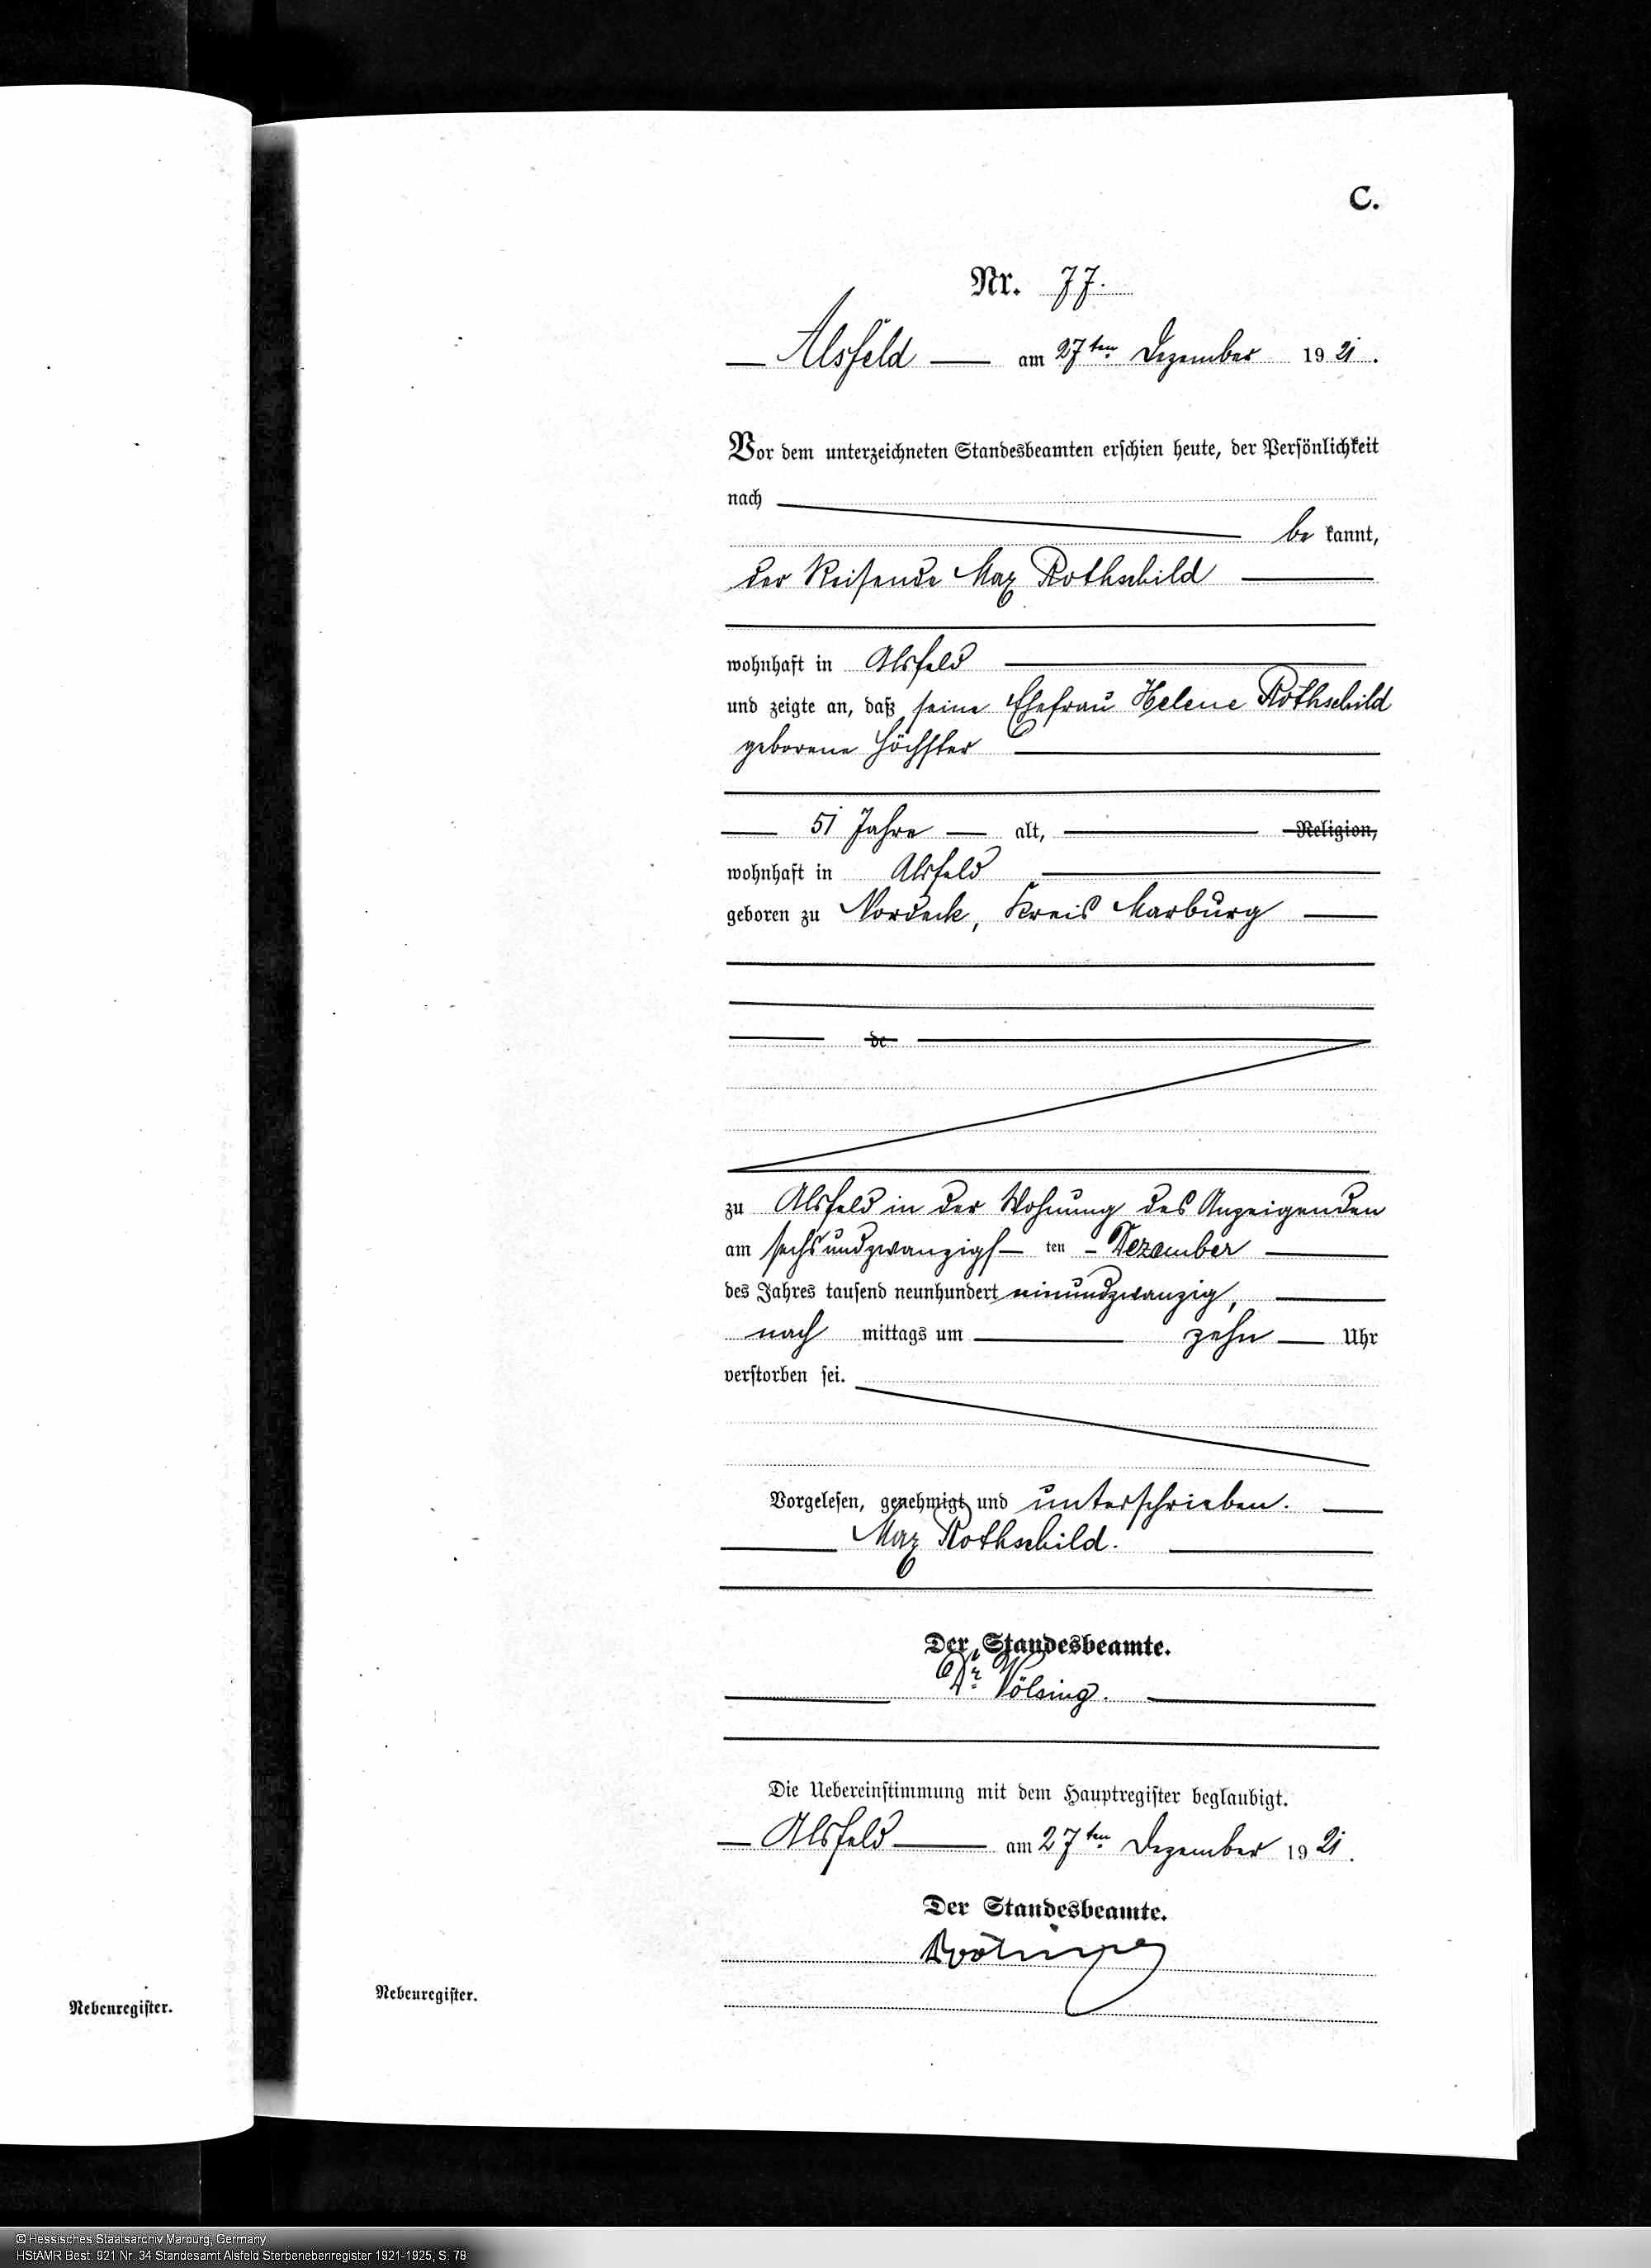 C.
Nr. 77.
Alsfeld am 27ten Dezember 1921.
Vor dem unterzeichneten Standesbeamten erschien heute, der Persönlichkeit
nach
be kannt,
der Reisende Max Rothschild
wohnhaft in Alsfeld
und zeigte an, daß seine Ehefrau Helene Rothschild
geborene Höchster
51 Jahre alt, Religion,
wohnhaft in Alsfeld
geboren zu Nordeck, Kreis Marburg
de
zu Alsfeld in der Wohnung des Anzeigenden
am sechsundzwanzigs ten Dezember
des Jahres tausend neunhundert einundzwanzig,
nach mittags um zehn Uhr
verstorben sei.
Vorgelesen, genehmigt und unterschrieben.
Max Rothschild.
Der Standesbeamte.
Dr. Völsing.
Die Uebereinstimmung mit dem Hauptregister beglaubigt.
Alsfeld am 27ten Dezember 1921.
Der Standesbeamte.
Nebenregister.
Nebenregister.
© Hessisches Staatsarchiv Marburg, Germany
HStAMR Best. 921 Nr. 34 Standesamt Alsfeld Sterbenebenregister 1921-1925, S. 78